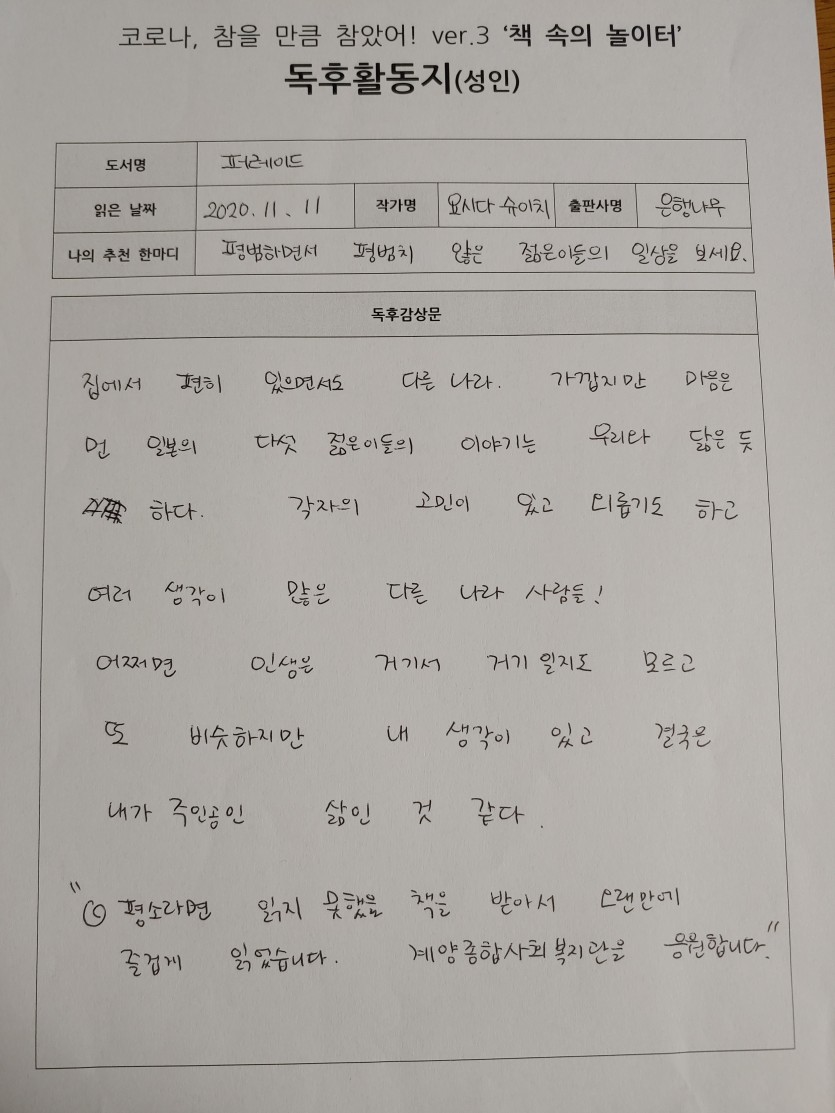 코로나, 참을 만큼 참았어! ver.3 '책 속의 놀이터'
독후활동지(성인)
도서명 퍼레이드
읽은 날짜 2020. 11. 11 작가명 요시다 슈이치 출판사명 은행나무
나의 추천 한마디 평범하면서 평범치 않은 젊은이들의 일상을 보세요.
독후감상문
집에서 편히 있으면서도 다른 나라. 가깝지만 마음은
먼 일본의 다섯 젊은이들의 이야기는 우리와 닮은 듯
하다. 각자의 고민이 있고 외롭기도 하고
여러 생각이 많은 다른 나라 사람들!
어쩌면 인생은 거기서 거기 일지도 모르고
또 비슷하지만 내 생각이 있고 결국은
내가 주인공인 삶인 것 같다.
" 평소라면 읽지 못했을 책을 받아서 오랜만에
즐겁게 읽었습니다. 계양종합사회복지관을 응원합니다."